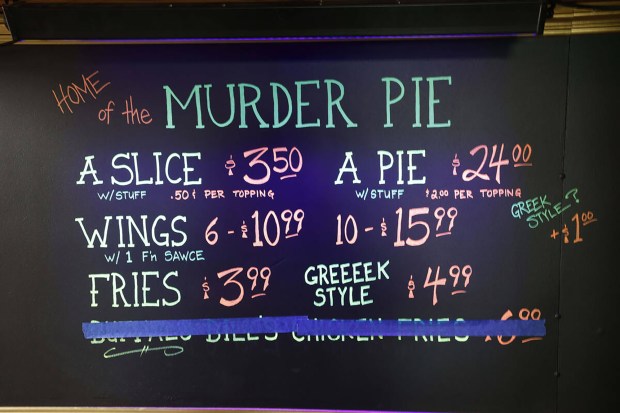 HOME of the MURDER PIE
A SLICE $3.50 A PIE $24.00
W/ STUFF .50¢ PER TOPPING W/ STUFF $2.00 PER TOPPING
GREEK STYLE? + $1.00
WINGS 6 - $10.99 10 - $15.99
W/ 1 F'n SAWCE
FRIES $3.99 GREEEEK STYLE $4.99
BUFFALO BILL'S CHICKEN FRIES $6.99